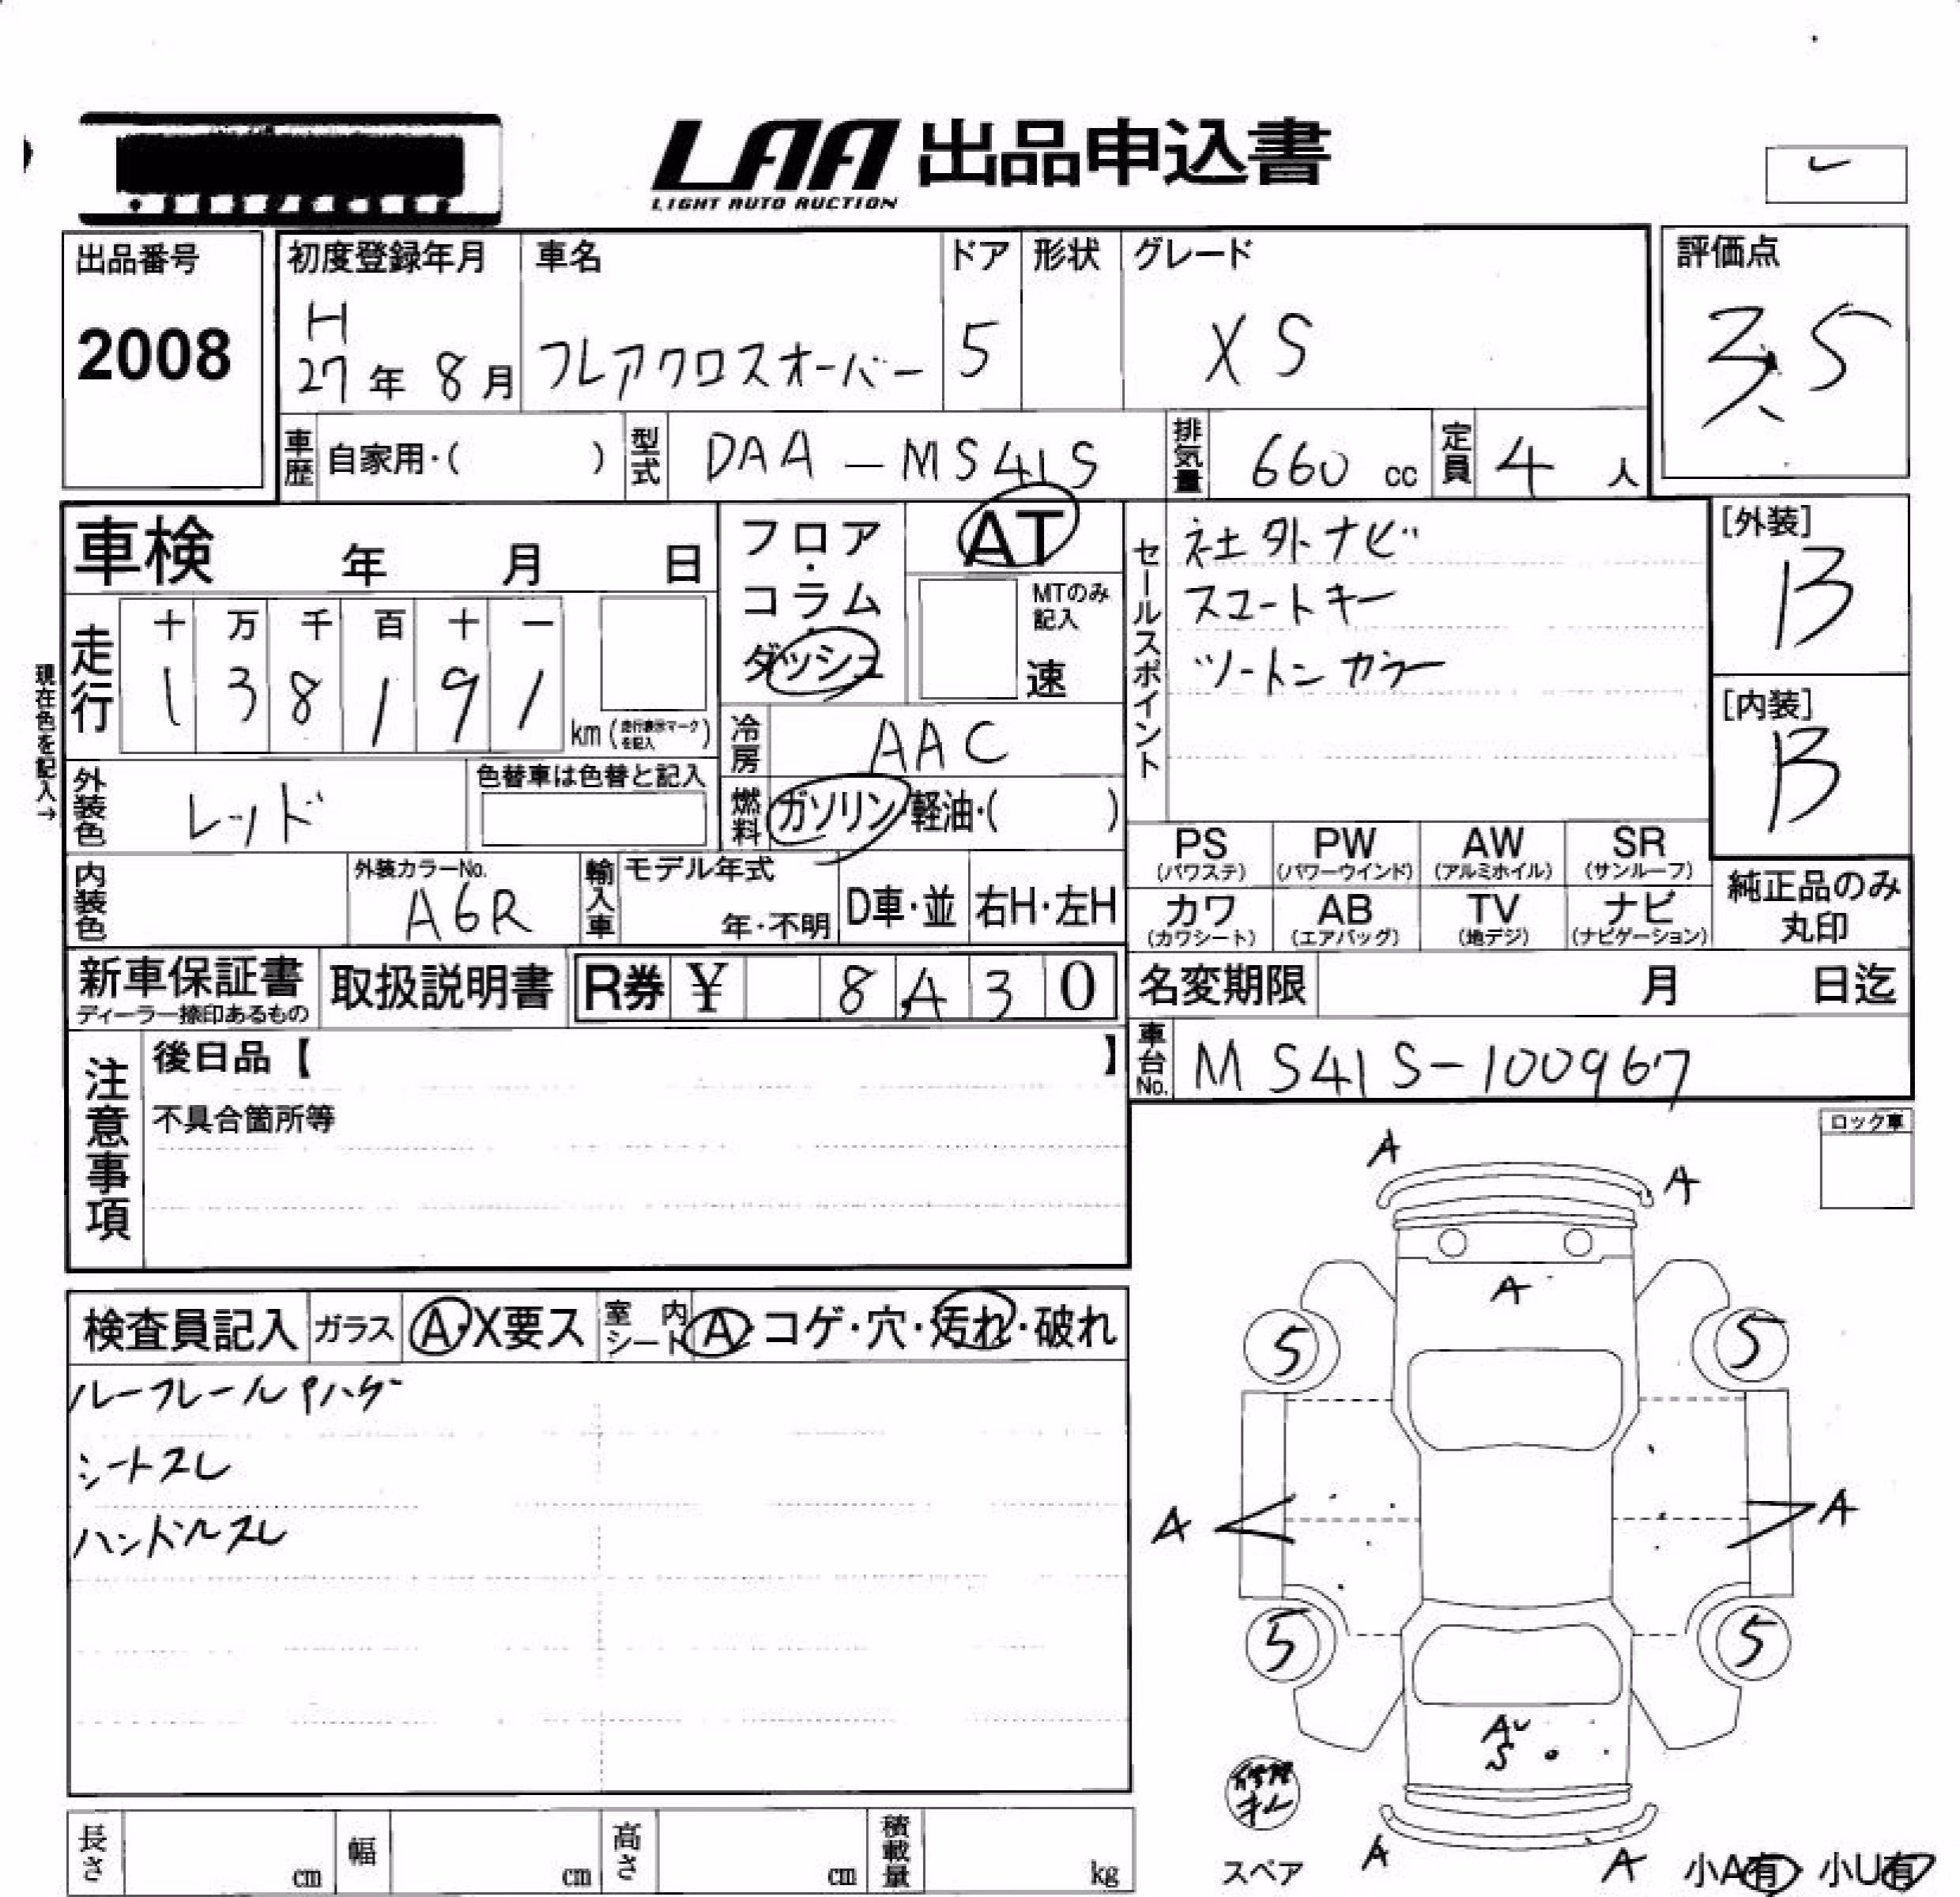 LAA 出品申込書
LIGHT AUTO AUCTION
出品番号
2008
初度登録年月
H
27年 8月
車名
フレアクロスオーバー
ドア
5
形状
グレード
XS
評価点
3.5
車歴 自家用・( )
型式 DAA-MS41S
排気量 660 cc
定員 4 人
車検 年 月 日
フロア・コラム
ダッシュ
AT
MTのみ記入
速
セールスポイント
社外ナビ
スマートキー
ツートンカラー
[外装]
B
[内装]
B
現在色を記入→
走行
十 万 千 百 十 一
1 3 8 1 9 1
km (走行表示マークを記入)
冷房 AAC
外装色 レッド
色替車は色替と記入
燃料 ガソリン・軽油・( )
内装色
外装カラーNo.
A6R
輸入車
モデル年式
年・不明
D車・並
右H・左H
PS (パワステ)
PW (パワーウインド)
AW (アルミホイル)
SR (サンルーフ)
カワ (カワシート)
AB (エアバッグ)
TV (地デジ)
ナビ (ナビゲーション)
純正品のみ
丸印
新車保証書
ディーラー捺印あるもの
取扱説明書
R券 ¥ 8,430
名変期限 月 日迄
車台No. MS41S-100967
注意事項
後日品【 】
不具合箇所等
ロック車
検査員記入
ガラス A・X要ス
室内シート A・コゲ・穴・汚れ・破れ
ルーフレールPハゲ
シートスレ
ハンドルスレ
A
A
A
5
5
A
A
5
5
AU
S
修理キット
スペア
A
A
小A有・小U有
長さ cm
幅 cm
高さ cm
積載量 kg